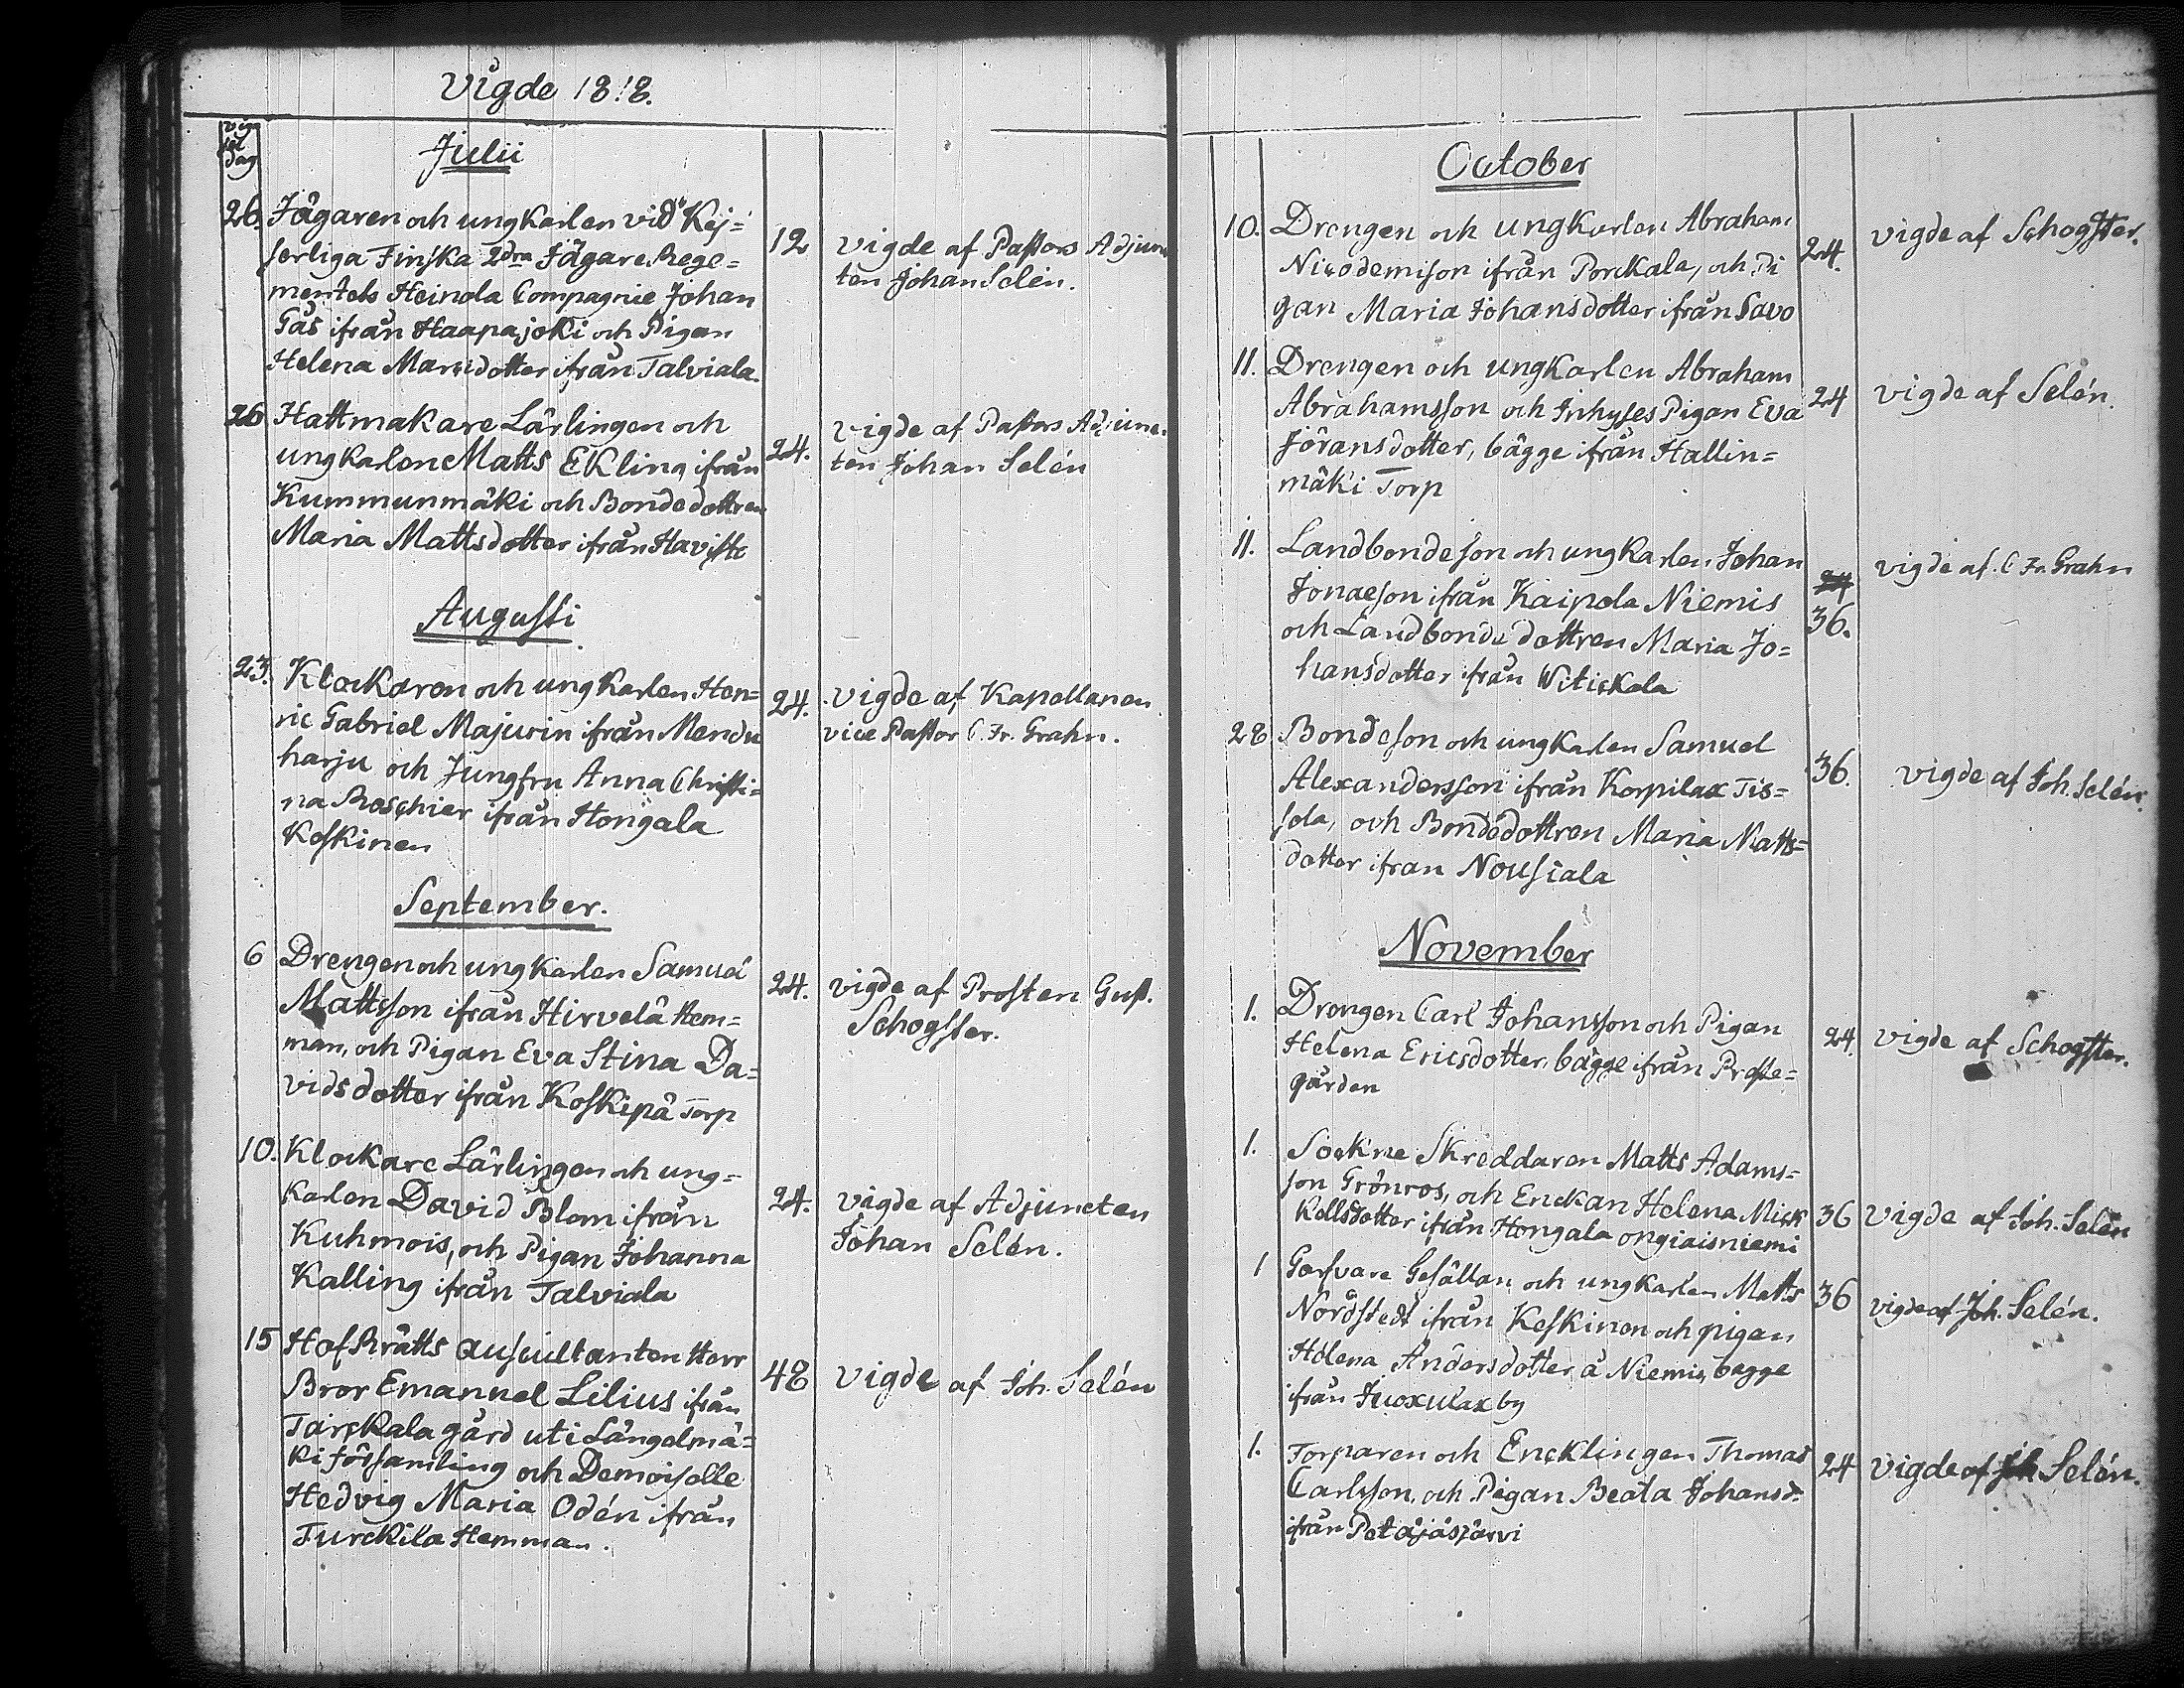 Vigde 1818.
vig
sel
dag
Julii
26. Jägaren och ungkarlen vid Kej=
serliga Finska 2dra Jägare Rege=
mentets Heinola Compagnie Johan
Gås ifrån Haapajoki och Pigan
Helena Marcidotter ifrån Talviala.
12 vigde af Pastors Adjunc
ten Johan Selén.
26 Hattmakare Lärlingen och
ungkarlen Matts Ekling ifrån
Kummunmäki och Bondedottren
Maria Mattsdotter ifrån Haviste
24. vigde af Pastors Adjunc
ten Johan Selén
Augusti
23. Klockaren och ungkarlen Hen=
ric Gabriel Majurin ifrån Mendu
harju och Jungfru Anna Christi=
na Roschier ifrån Hongala
Koskinen
24. vigde af Kapellanen
vice Pastor C. Fr. Grahn.
September.
6 Drengen och ungkarlen Samuel
Mattsson ifrån Hirvelä Hem=
man, och Pigan Eva Stina Da=
vidsdotter ifrån Koskipä Torp
24. vigde af Prosten Gust.
Schogster.
10. Klockare Lärlingen och ung=
karlen David Blom ifrån
Kuhmois, och Pigan Johanna
Kalling ifrån Talviala
24. vigde af Adjuncten
Johan Selén.
15 HofRätts Auscultanten Herr
Bror Emanuel Lilius ifrån
Tarckala gård uti Längelmä=
ki församling och Demoiselle
Hedvig Maria Odén ifrån
Turckila Hemman.
48 vigde af Joh. Selén
October
10. Drengen och ungkarlen Abraham
Nicodemison ifrån Porckala, och Pi
gan Maria Johansdotter ifrån Savo
24. vigde af Schogster.
11. Drengen och ungkarlen Abraham
Abrahamsson och Inhyses Pigan Eva
Jöransdotter, bägge ifrån Hallin=
mäki Torp
24 vigde af Selén.
11. Landbondeson och ungkarlen Johan
Jonaeson ifrån Kaipola Niemis
och Landbonde dottren Maria Jo=
hansdotter ifrån Witickala
24
36. vigde af C Fr. Grahn
28 Bondeson och ungkarlen Samuel
Alexandersson ifrån Korpilax Tis=
sola, och Bondedottren Maria Matts=
dotter ifrån Nousiala
36. vigde af Joh. Selén.
November
1. Drengen Carl Johansson och Pigan
Helena Ericsdotter, bägge ifrån Proste=
gården
24. vigde af Schogster.
1. Sockne Skreddaren Matts Adams=
son Grönros, och Enckan Helena Mick
kellsdotter ifrån Hongala ongiaisniemi
36 vigde af Joh. Selén
1 Garfvare Gesällan och ungkarlen Matts
Nordstedt ifrån Keskinen och pigan
Helena Andersdotter å Niemis, bägge
ifrån Juoxulax by
36 vigde af Joh. Selén.
1. Torparen och Encklingen Thomas
Carlsson, och Pigan Beata Johansd.
ifrån Petäjäsjärvi
24 vigde af Joh Selén.